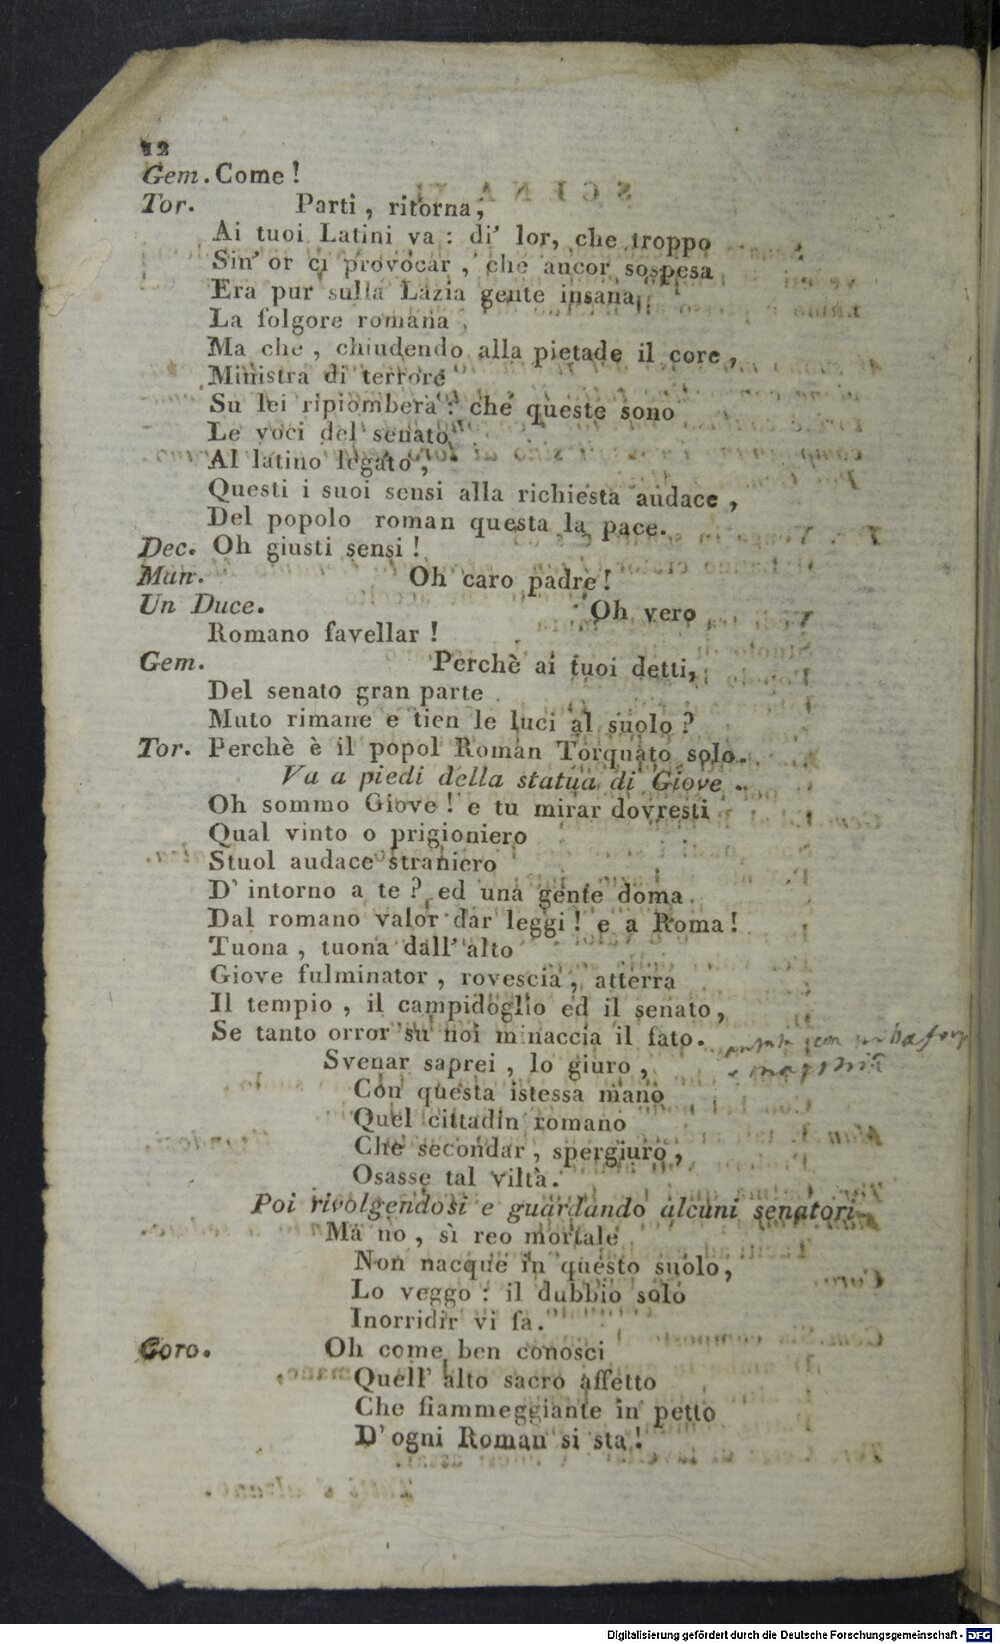 12
Gem. Come !
Tor. Parti , ritorna ,
Ai tuoi Latini va : di' lor, che troppo
Sin' or ci provocar , che ancor sospesa
Era pur sulla Lazia gente insana,
La folgore romana ,
Ma che , chiudendo alla pietade il core ,
Ministra di terrore
Su lei ripiomberà : che queste sono
Le voci del senato
Al latino legato ,
Questi i suoi sensi alla richiesta audace ,
Del popolo roman questa la pace.
Dec. Oh giusti sensi !
Man. Oh caro padre !
Un Duce. Oh vero
Romano favellar !
Gem. Perchè ai tuoi detti,
Del senato gran parte
Muto rimane e tien le luci al suolo ?
Tor. Perchè è il popol Roman Torquato solo.
Va a piedi della statua di Giove .
Oh sommo Giove ! e tu mirar dovresti
Qual vinto o prigioniero
Stuol audace straniero
D' intorno a te ? ed una gente doma
Dal romano valor dar leggi ! e a Roma !
Tuona , tuona dall' alto
Giove fulminator , rovescia , atterra
Il tempio , il campidoglio ed il senato ,
Se tanto orror su noi minaccia il fato.
Svenar saprei , lo giuro ,
Con questa istessa mano
Quel cittadin romano
Che secondar , spergiuro ,
Osasse tal viltà.
Poi rivolgendosi e guardando alcuni senatori
Ma no , sì reo mortale
Non nacque in questo suolo ,
Lo veggo : il dubbio solo
Inorridir vi fa.
Coro. Oh come ben conosci
Quell' alto sacro affetto
Che fiammeggiante in petto
D' ogni Roman si sta !
Digitalisierung gefördert durch die Deutsche Forschungsgemeinschaft - DFG